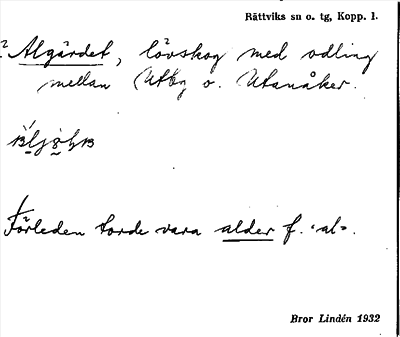 Rättviks sn o. tg, Kopp. l.
? Algärdet, lövskog med odling
mellan Utby o. Utanåker.
Förleden torde vara alder f. "al".
Bror Lindén 1932